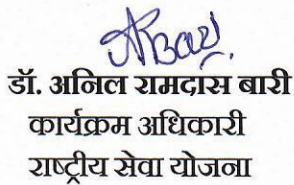 डॉ. अनिल रामदास बारी
कार्यक्रम अधिकारी
राष्ट्रीय सेवा योजना